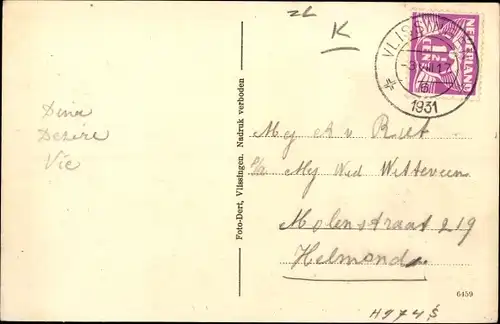 K
VLISS
1931
NEDERLAND
1½
CENT
Dina
Desire
Vic
Foto-Dert, Vlissingen. Nadruk verboden
Mej A v Rut
p/a Mej Wed Witteveen
Molenstraat 219
Helmond
6459
H974$